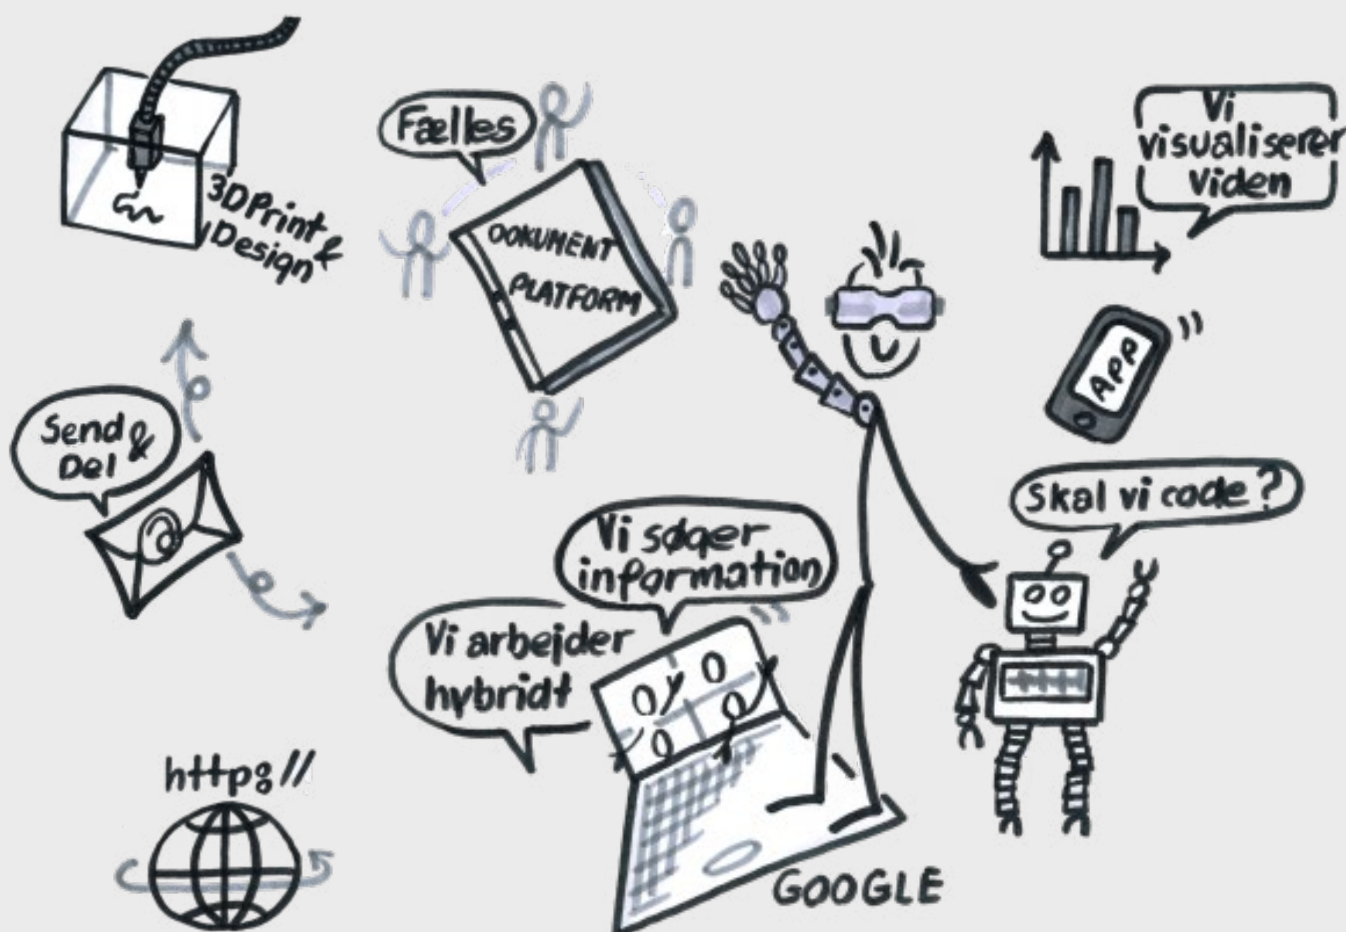 3D Print &
Design
Fælles
DOKUMENT
PLATFORM
Vi
visualiserer
Viden
APP
Send &
Del
Skal vi code?
Vi søger
information
Vi arbejder
hybridt
http://
GOOGLE